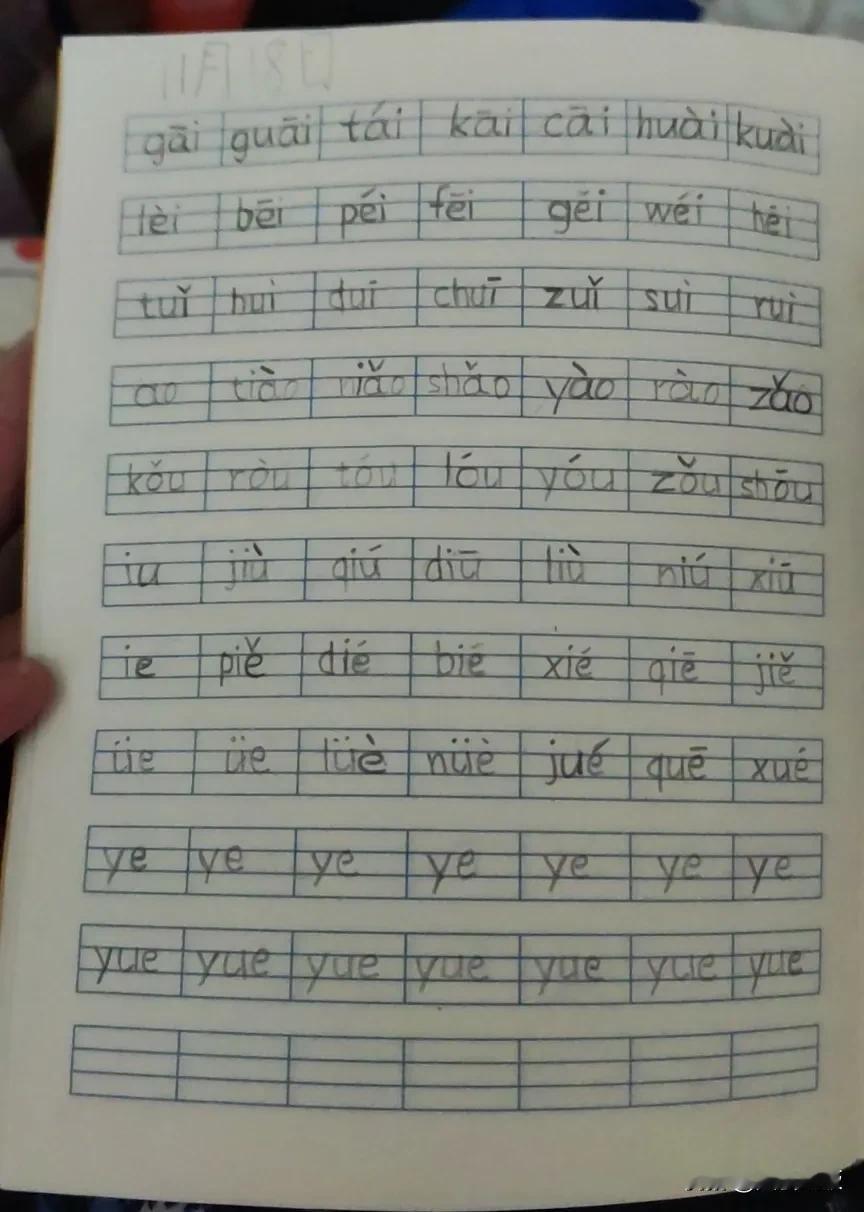 11月18日
gāi guāi tái kāi cāi huài kuài
lèi bēi péi fēi gěi wéi hēi
tuǐ huì duī chuī zuǐ suì ruì
ao tiào niǎo shǎo yào rào zǎo
kǒu ròu tóu lóu yóu zǒu shōu
iu jiù qiú diū liù niú xiū
ie piě dié bié xié qiē jiě
üe üe lüè nüè jué quē xué
ye ye ye ye ye ye ye
yue yue yue yue yue yue yue